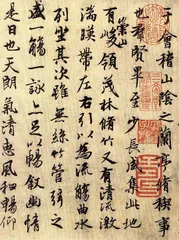 于會稽山陰之蘭亭脩稧事
也羣賢畢至少長咸集此地
有崇山峻領茂林脩竹又有清流激
湍暎帶左右引以為流觴曲水
列坐其次雖無絲竹管弦之
盛一觴一詠亦足以暢敘幽情
是日也天朗氣清惠風和暢仰